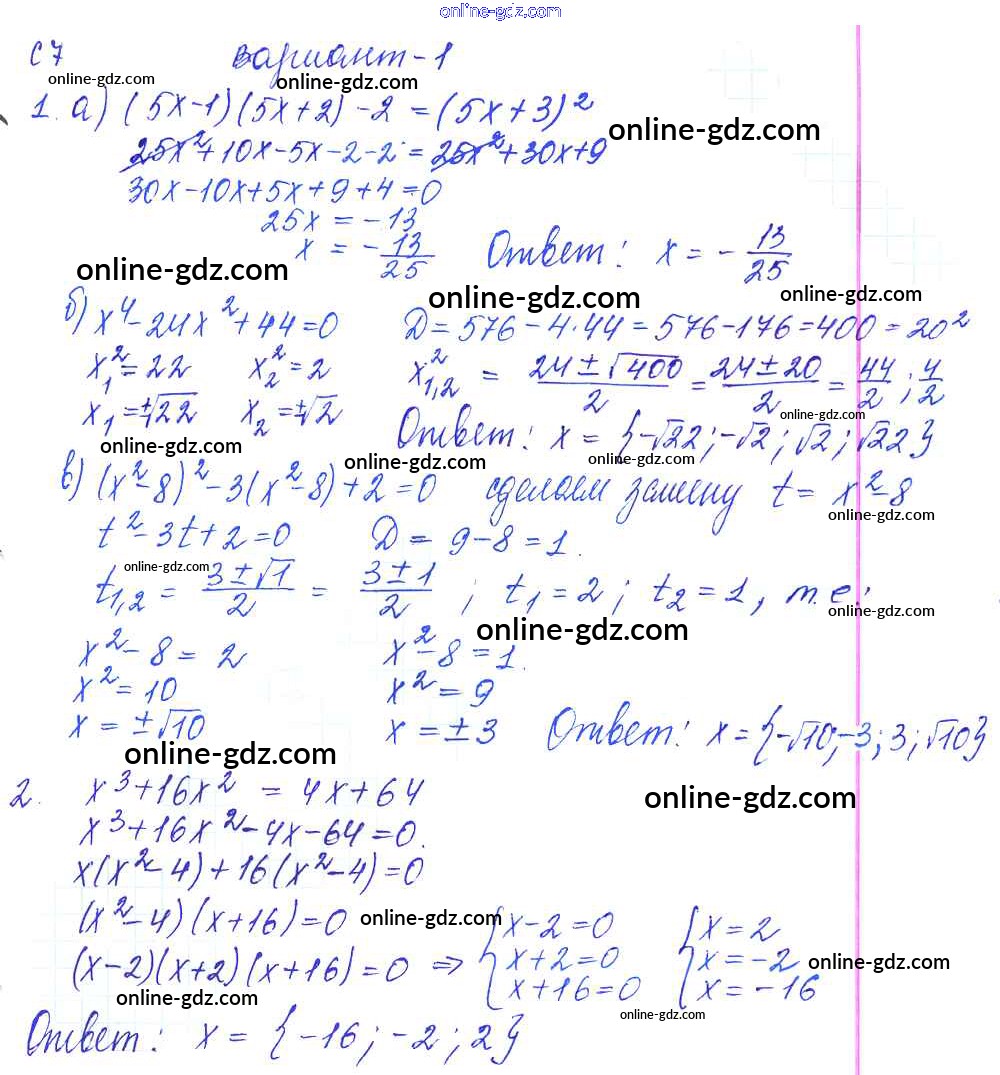 online-gdz.com
С 7 вариант-1
online-gdz.com online-gdz.com
1. а) (5x-1)(5x+2)-2 = (5x+3)²
online-gdz.com
25x²+10x-5x-2-2 = 25x²+30x+9
30x-10x+5x+9+4=0
25x = -13
x = -13/25 Ответ: x = -13/25
online-gdz.com
online-gdz.com online-gdz.com
б) x⁴-24x²+44=0 D = 576-4·44 = 576-176=400=20²
x₁²=22 x₂²=2 x²₁,₂ = (24±√400)/2 = (24±20)/2 = 44/2; 4/2
online-gdz.com
x₁=±√22 x₂=±√2
Ответ: x = {-√22; -√2; √2; √22}
online-gdz.com online-gdz.com online-gdz.com
в) (x²-8)²-3(x²-8)+2=0 сделаем замену t = x²-8
online-gdz.com
t²-3t+2=0 D = 9-8=1.
online-gdz.com
t₁,₂ = (3±√1)/2 = (3±1)/2; t₁=2; t₂=1, т.е.:
online-gdz.com
online-gdz.com
x²-8=2 x²-8=1.
x²=10 x²=9
x=±√10 x=±3 Ответ: x={-√10;-3;3;√10}
online-gdz.com
2. x³+16x² = 4x+64
online-gdz.com
x³+16x²-4x-64=0.
x(x²-4)+16(x²-4)=0
(x²-4)(x+16)=0 online-gdz.com { x-2=0 { x=2
(x-2)(x+2)(x+16)=0 ⇒ x+2=0 x=-2 online-gdz.com
x+16=0 x=-16
online-gdz.com online-gdz.com
Ответ: x = {-16; -2; 2}